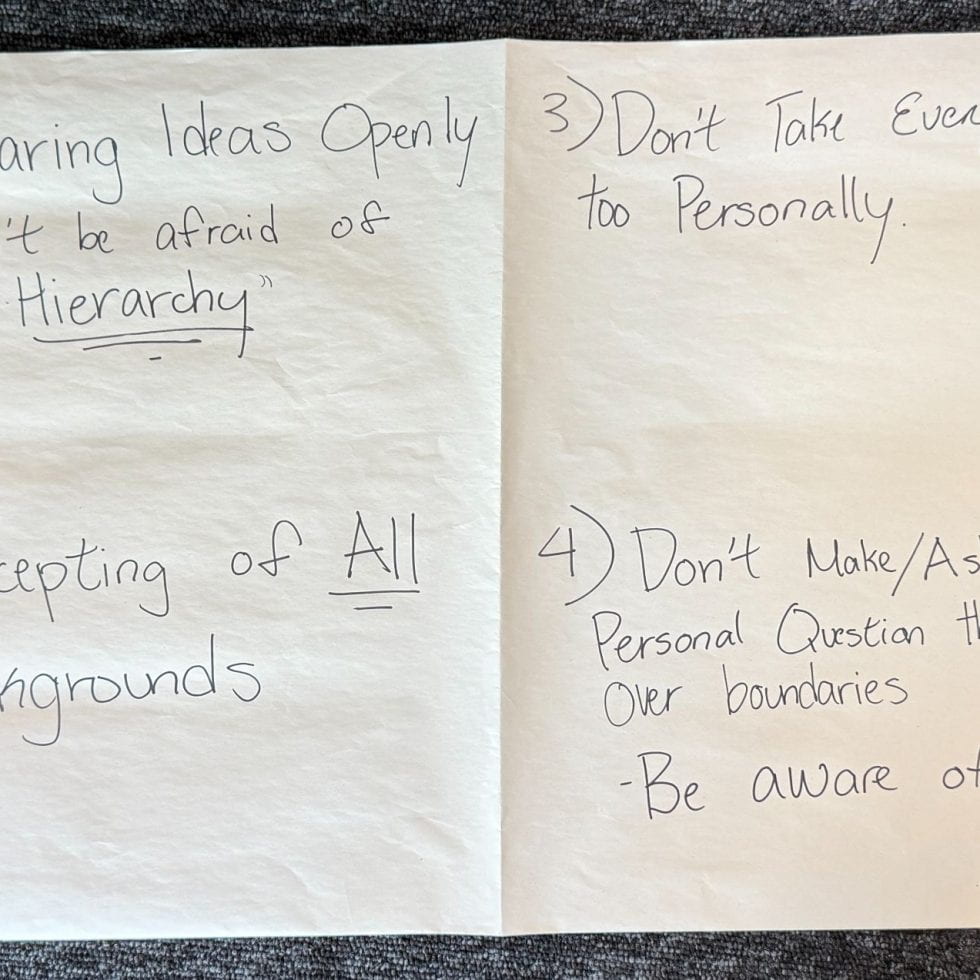 aring Ideas Openly
't be afraid of
Hierarchy"
cepting of All
kgrounds
3) Don't Take Ever
too Personally.
4) Don't Make/As
Personal Question th
Over boundaries
-Be aware of